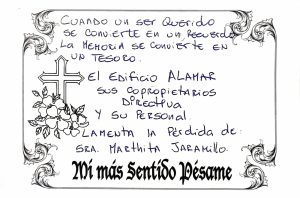 CUANDO UN SER QUERIDO
SE CONVIERTE EN UN RECUERDO
LA MEMORIA SE CONVIERTE EN
UN TESORO.
El EDIFICIO ALAMAR
SUS COPROPIETARIOS
DIRECTIVA
Y SU PERSONAL.
LAMENTA LA PÉRDIDA DE:
SRA. MARTHITA JARAMILLO.
Mi más Sentido Pésame